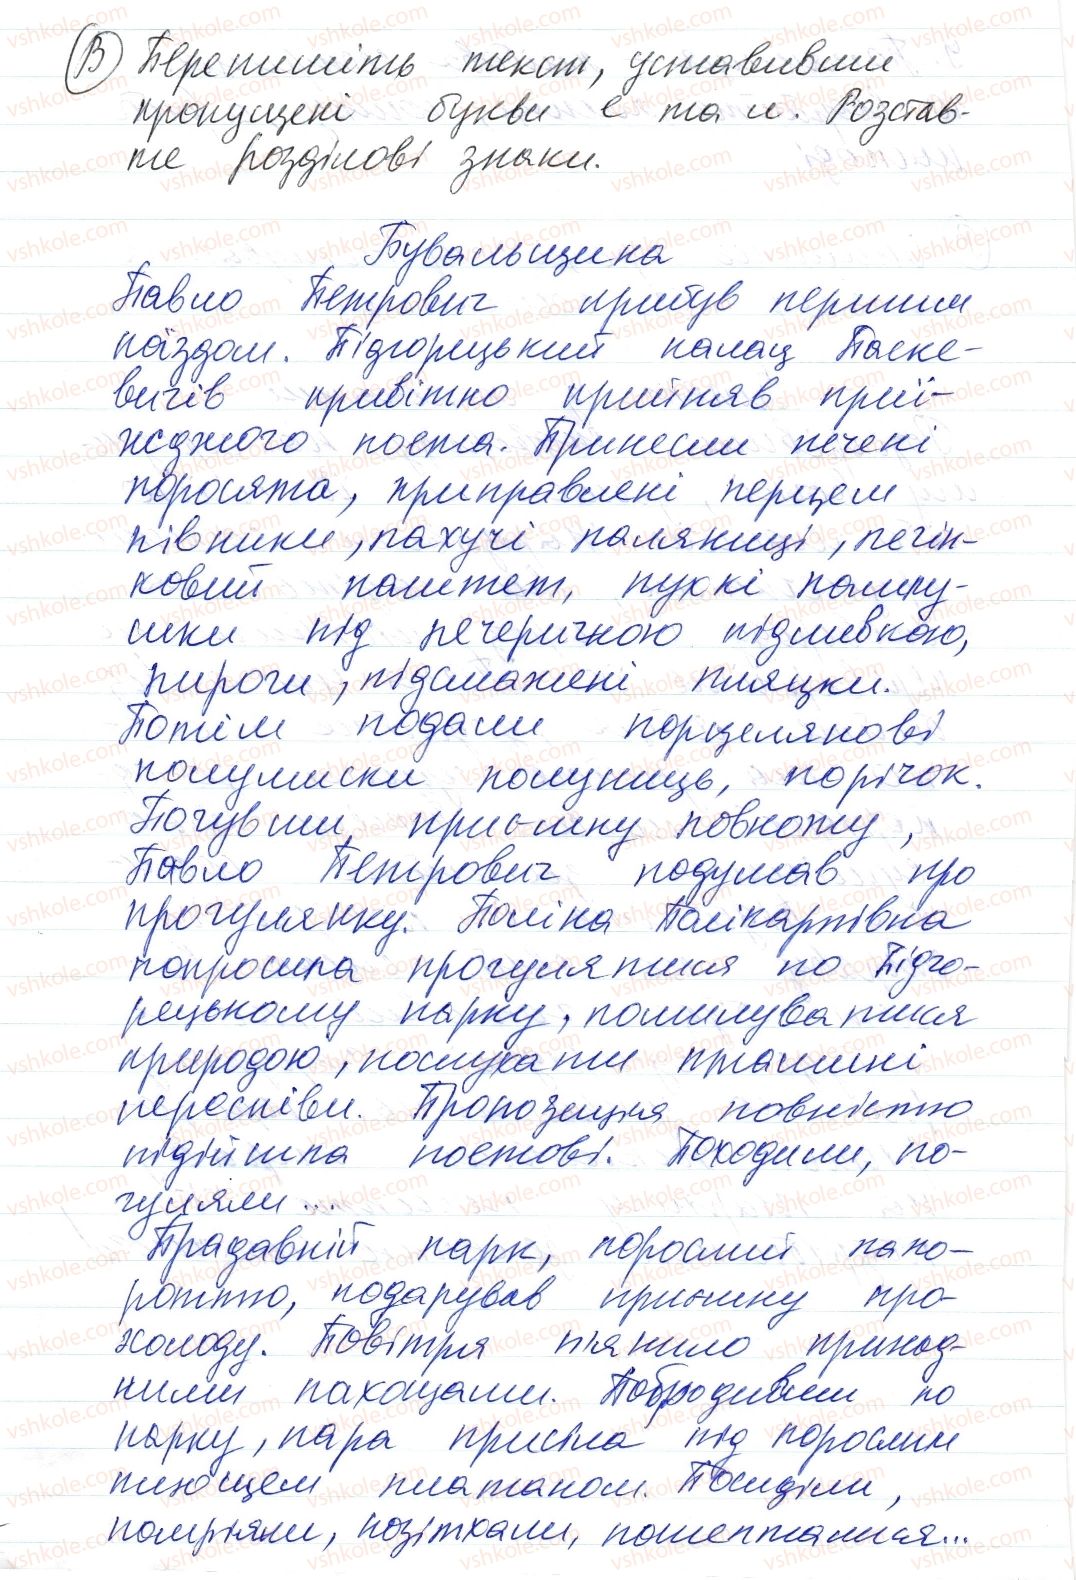 В Перепишіть текст, уставивши
пропущені букви е та и. Розстав-
те розділові знаки.
Бувальщина
Павло Петрович прибув першим
поїздом. Підгорецький палац Паске-
вичів привітно прийняв приї-
жджого поета. Принесли печені
поросята, приправлені перцем
півники, пахучі паляниці, печін-
ковий паштет, пухкі пампу-
шки під печеричною підливкою,
пироги, підсмажені пляцки.
Потім подали порцелянові
полумиски полуниць, порічок.
Почувши приємну повножу,
Павло Петрович подумав про
прогулянку. Поліна Полікарпівна
попросила прогулятися по Підго-
рецькому парку, помилуватися
природою, послухати пташині
переспіви. Пропозиція повністю
підійшла поетові. Походили, по-
гуляли...
Прадавній парк, порослий папо-
роттю, подарував приємну про-
холоду. Повітря п'янило принад-
ними пахощами. Побродивши по
парку, пара присіла під порослим
плющем платаном. Посиділи,
помріяли, позітхали, пошепталися...